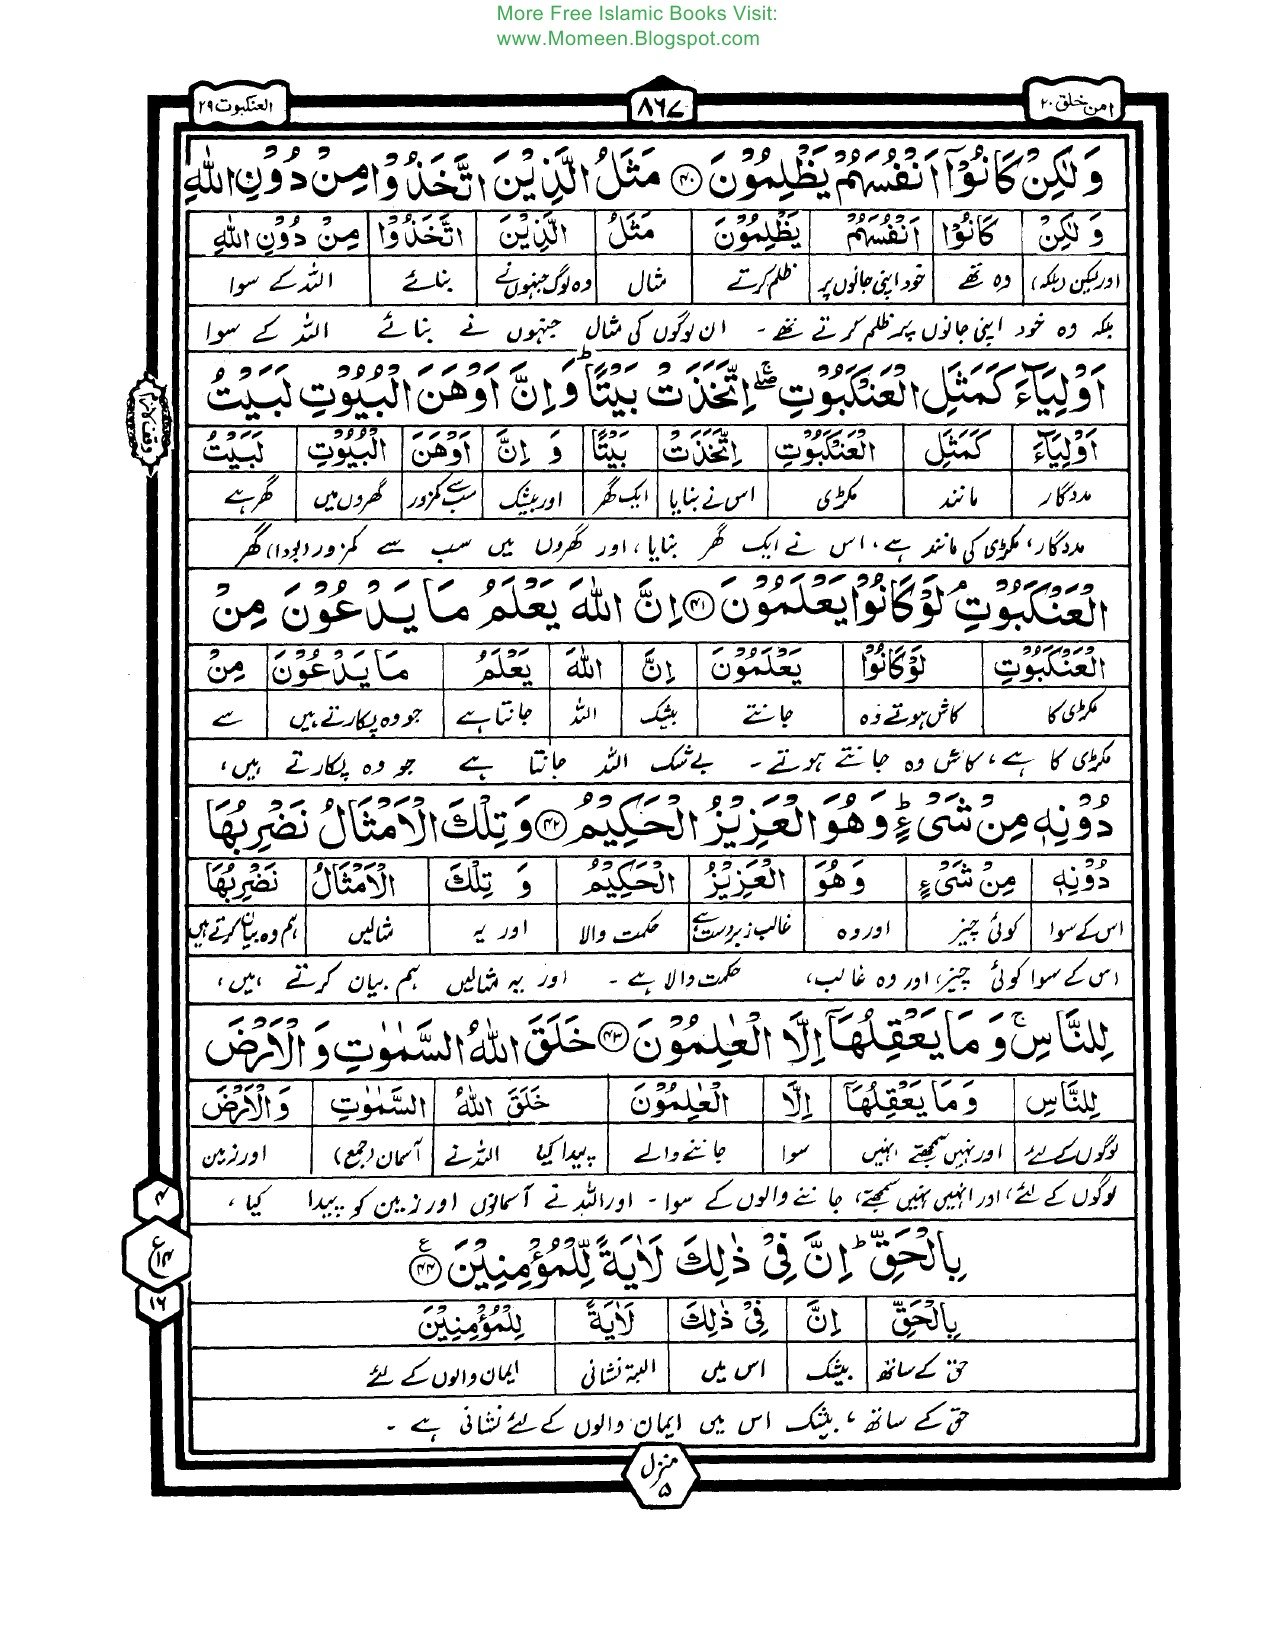 More Free Islamic Books Visit:
www.Momeen.Blogspot.com
امن خلق ۲۰
۸۶۷
العنکبوت ۲۹
وَلٰكِنْ كَانُوْۤا اَنْفُسَهُمْ يَظْلِمُوْنَ ﴿۴۰﴾ مَثَلُ الَّذِيْنَ اتَّخَذُوْا مِنْ دُوْنِ اللّٰهِ
وَلٰكِنْ كَانُوْا اَنْفُسَهُمْ يَظْلِمُوْنَ مَثَلُ الَّذِيْنَ اتَّخَذُوْا مِنْ دُوْنِ اللّٰهِ
اور لیکن (بلکہ) وہ تھے خود اپنی جانوں پر ظلم کرتے مثال وہ لوگ جنہوں نے بنائے اللہ کے سوا
بلکہ وہ خود اپنی جانوں پر ظلم کرتے تھے۔ ان لوگوں کی مثال جنہوں نے بنائے اللہ کے سوا
اَوْلِيَآءَ كَمَثَلِ الْعَنْكَبُوْتِ ۖۚ اِتَّخَذَتْ بَيْتًا ؕ وَاِنَّ اَوْهَنَ الْبُيُوْتِ لَبَيْتُ
اَوْلِيَآءَ كَمَثَلِ الْعَنْكَبُوْتِ اِتَّخَذَتْ بَيْتًا وَ اِنَّ اَوْهَنَ الْبُيُوْتِ لَبَيْتُ
مددگار مانند مکڑی اس نے بنایا ایک گھر اور بیشک سب سے کمزور گھروں میں گھر ہے
مددگار، مکڑی کی مانند ہے، اس نے ایک گھر بنایا، اور گھروں میں سب سے کمزور (بودا) گھر
الْعَنْكَبُوْتِ ۘ لَوْ كَانُوْا يَعْلَمُوْنَ ﴿۴۱﴾ اِنَّ اللّٰهَ يَعْلَمُ مَا يَدْعُوْنَ مِنْ
الْعَنْكَبُوْتِ لَوْ كَانُوْا يَعْلَمُوْنَ اِنَّ اللّٰهَ يَعْلَمُ مَا يَدْعُوْنَ مِنْ
مکڑی کا کاش ہوتے وہ جانتے بیشک اللہ جانتا ہے جو وہ پکارتے ہیں سے
مکڑی کا ہے، کاش وہ جانتے ہوتے۔ بے شک اللہ جانتا ہے جو وہ پکارتے ہیں،
دُوْنِهٖ مِنْ شَیْءٍ ؕ وَهُوَ الْعَزِيْزُ الْحَكِيْمُ ﴿۴۲﴾ وَتِلْكَ الْاَمْثَالُ نَضْرِبُهَا
دُوْنِهٖ مِنْ شَیْءٍ وَهُوَ الْعَزِيْزُ الْحَكِيْمُ وَ تِلْكَ الْاَمْثَالُ نَضْرِبُهَا
اس کے سوا کوئی چیز اور وہ غالب زبردست ہے حکمت والا اور یہ مثالیں ہم وہ بیان کرتے ہیں
اس کے سوا کوئی چیز، اور وہ غالب، حکمت والا ہے۔ اور یہ مثالیں ہم بیان کرتے ہیں،
لِلنَّاسِ ۚ وَمَا يَعْقِلُهَاۤ اِلَّا الْعٰلِمُوْنَ ﴿۴۳﴾ خَلَقَ اللّٰهُ السَّمٰوٰتِ وَالْاَرْضَ
لِلنَّاسِ وَمَا يَعْقِلُهَاۤ اِلَّا الْعٰلِمُوْنَ خَلَقَ اللّٰهُ السَّمٰوٰتِ وَالْاَرْضَ
لوگوں کے لئے اور نہیں سمجھتے انہیں سوا جاننے والے پیدا کیا اللہ نے آسمان (جمع) اور زمین
لوگوں کے لئے، اور انہیں نہیں سمجھتے، جاننے والوں کے سوا۔ اور اللہ نے آسمانوں اور زمین کو پیدا کیا،
بِالْحَقِّ ؕ اِنَّ فِیْ ذٰلِكَ لَاٰيَةً لِّلْمُؤْمِنِيْنَ ﴿۴۴﴾ ع
بِالْحَقِّ اِنَّ فِیْ ذٰلِكَ لَاٰيَةً لِلْمُؤْمِنِيْنَ
حق کے ساتھ بیشک اس میں البتہ نشانی ایمان والوں کے لئے
حق کے ساتھ، بیشک اس میں ایمان والوں کے لئے نشانی ہے۔
۴
ع ۱۴
۱۶
منزل ۵